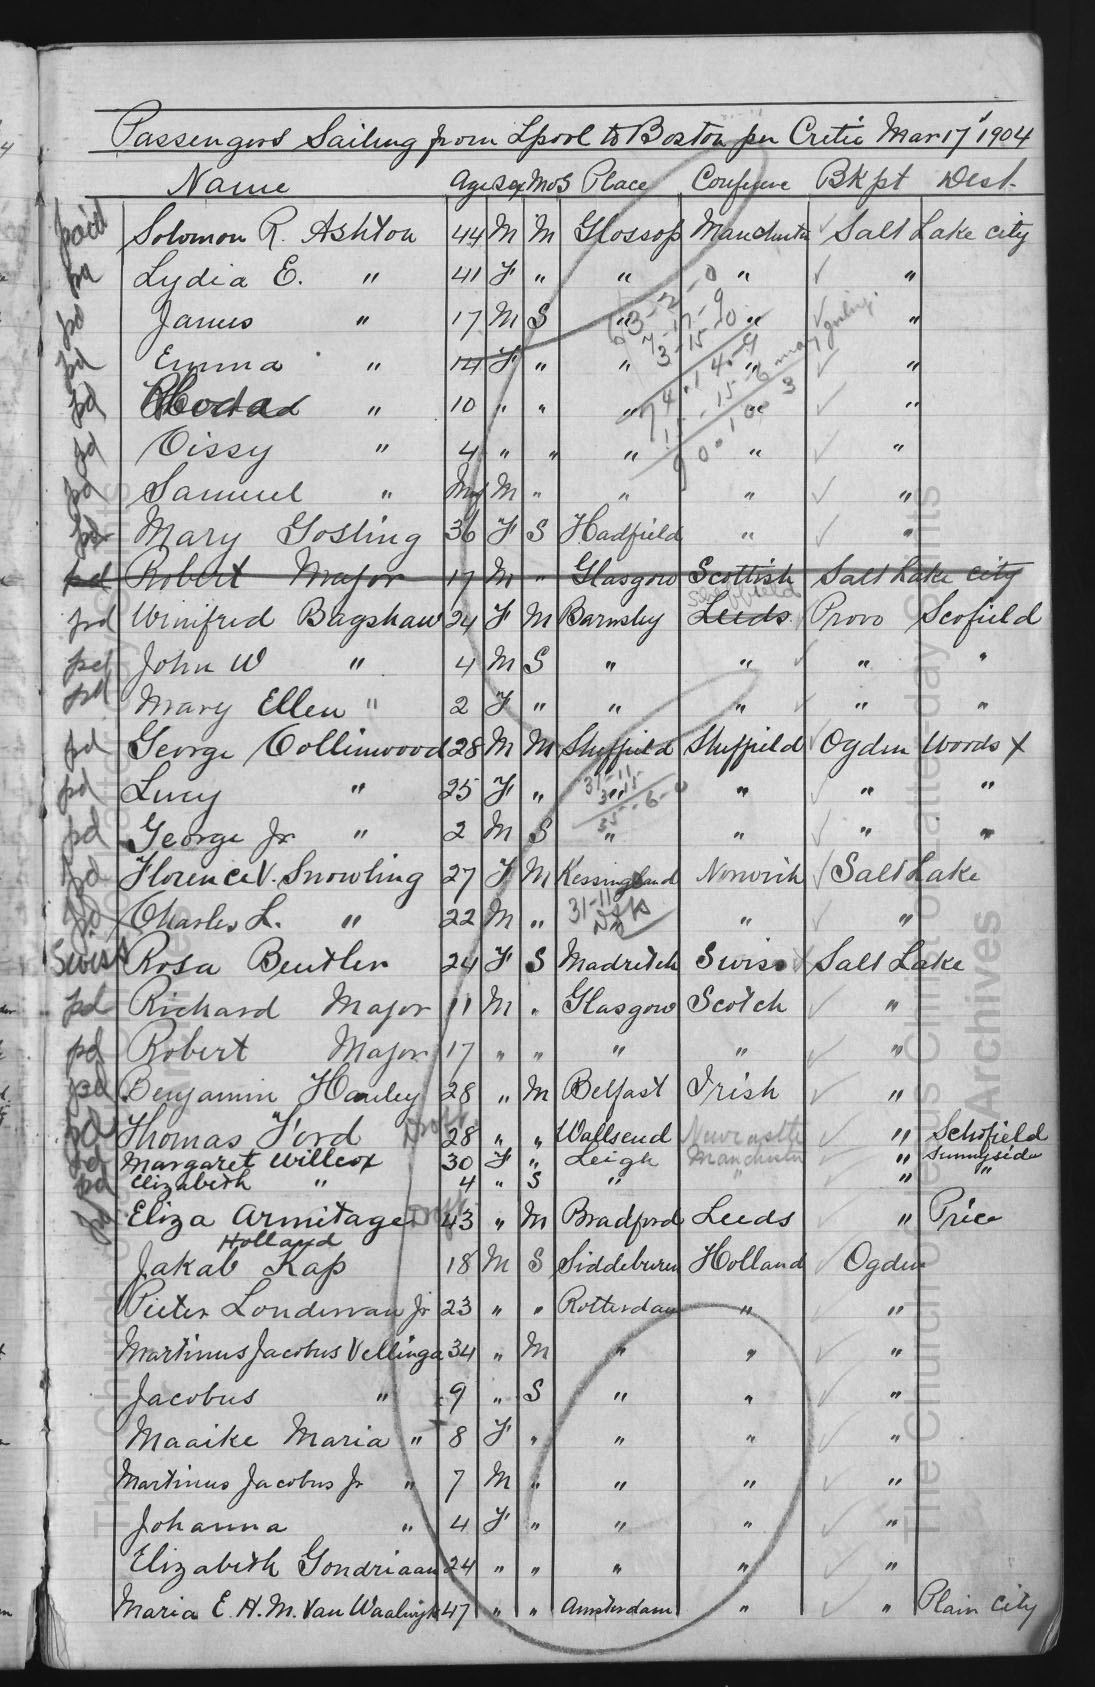 Passengers Sailing from Lpool to Boston per Cretic Mar 17" 1904
Name Age Sex M or S Place Conference Bkpt Dest.
paid Solomon R. Ashton 44 M M Glossop Manchester ✓ Salt Lake City
pd Lydia E. " 41 F " " " ✓ "
pd James " 17 M S " " ✓ "
pd Emma " 14 F " " " ✓ "
pd " 10 " " " " ✓ "
pd Cissy " 4 " " " " ✓ "
pd Samuel " Inf M " " " ✓ "
pd Mary Gosling 36 F S Hadfield " ✓ "
pd Robert Major 17 M " Glasgow Scottish Salt Lake City
Sheffield
pd Winifred Bagshaw 24 F M Barnsley Leeds Provo Scofield
pd John W " 4 M S " " ✓ " "
pd Mary Ellen " 2 F " " " ✓ " "
pd George Collinwood 28 M M Sheffield Sheffield Ogden Words X
pd Lucy " 25 F " " " ✓ " "
pd George Jr " 2 M S " " ✓ " "
pd Florence V. Snowling 27 F M Kessingland Norwich ✓ Salt Lake
pd Charles L. " 22 M " " " ✓ "
Swiss Rosa Beutler 24 F S Madretsch Swiss Salt Lake
pd Richard Major 11 M " Glasgow Scotch ✓ "
pd Robert Major 17 " " " " ✓ "
pd Benjamin Hanley 28 " M Belfast Irish ✓ "
pd Thomas Ford 28 " " Wallsend Newcastle ✓ " Schofield
pd Margaret Willcox 30 F " Leigh Manchester ✓ " Sunnyside
pd Elizabeth " 4 " S " " ✓ " "
pd Eliza Armitage 43 " M Bradford Leeds ✓ " Price
Holland
Jakab Kap 18 M S Siddeburen Holland ✓ Ogden
Pieter Londervan Jr 23 " " Rotterdam " ✓ "
Martinus Jacobus Vellinga 34 " M " " ✓ "
Jacobus " 9 " S " " ✓ "
Maaike Maria " 8 F " " " ✓ "
Martinus Jacobus Jr " 7 M " " " ✓ "
Johanna " 4 F " " " ✓ "
Elizabeth Gondriaan 24 " " " " ✓ "
Maria E. H. M. Van Waalwijk 47 " " Amsterdam " ✓ " Plain City